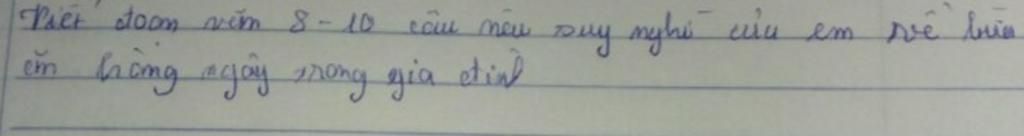 Viết đoạn văn 8 - 10 câu nêu suy nghĩ của em về bữa
ăn hằng ngày trong gia đình